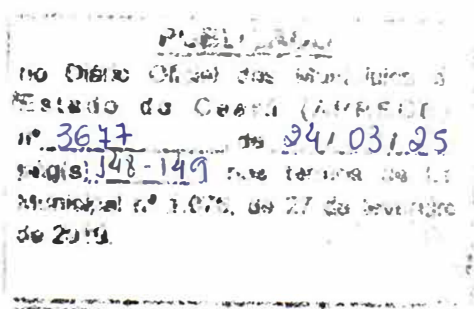 PUBLICADO
no Diário Oficial dos Municípios do
Estado do Ceará (APRECE)
nº 3677 de 24/03/25
pág(s) 148-149 nos termos da Lei
Municipal nº de 27 de fevereiro
de 2019.